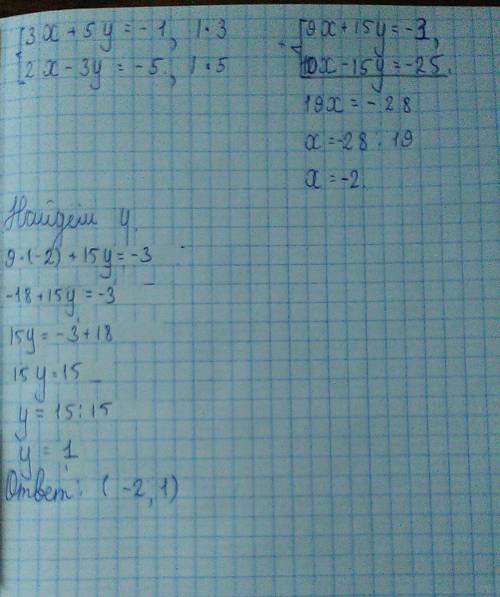 3x + 5y = -1, | · 3
2x - 3y = -5, | · 5
+ 9x + 15y = -3,
10x - 15y = -25.
19x = -28
x = -28 : 19
x = -2.
Найдем y.
9·(-2) + 15y = -3
-18 + 15y = -3
15y = -3 + 18
15y = 15
y = 15 : 15
y = 1
Ответ: (-2, 1)